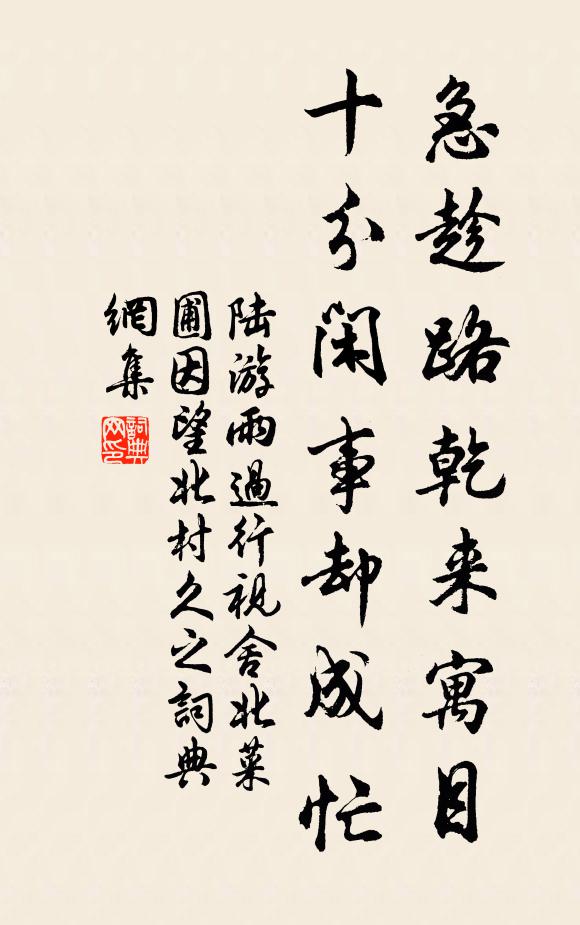 急趁路乾来寓目
十分閑事却成忙
陆游雨過行視舍北菜
圃因望北村久之詞典
網集
詞典
网印